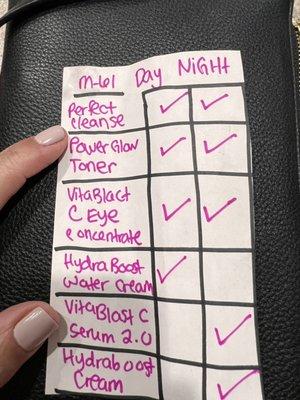 M-61 Day NIGHT
Perfect ✓ ✓
cleanse
Power Glow ✓ ✓
Toner
VitaBlast ✓ ✓
C Eye
Concentrate
HydraBoost ✓
Water Cream
VitaBlast C ✓
Serum 2.0
Hydraboost ✓
Cream